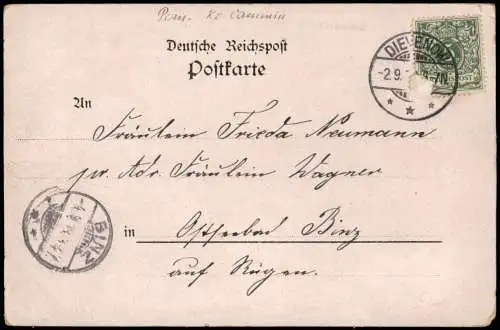 Pom. Kr. Cammin
Deutsche Reichspost
Postkarte
DIEVENOW
-2.9.
7-N
An
Fräulein Frieda Neumann
pr. Adr. Fräulein Wagner
in Ostseebad Binz
auf Rügen.
BINZ